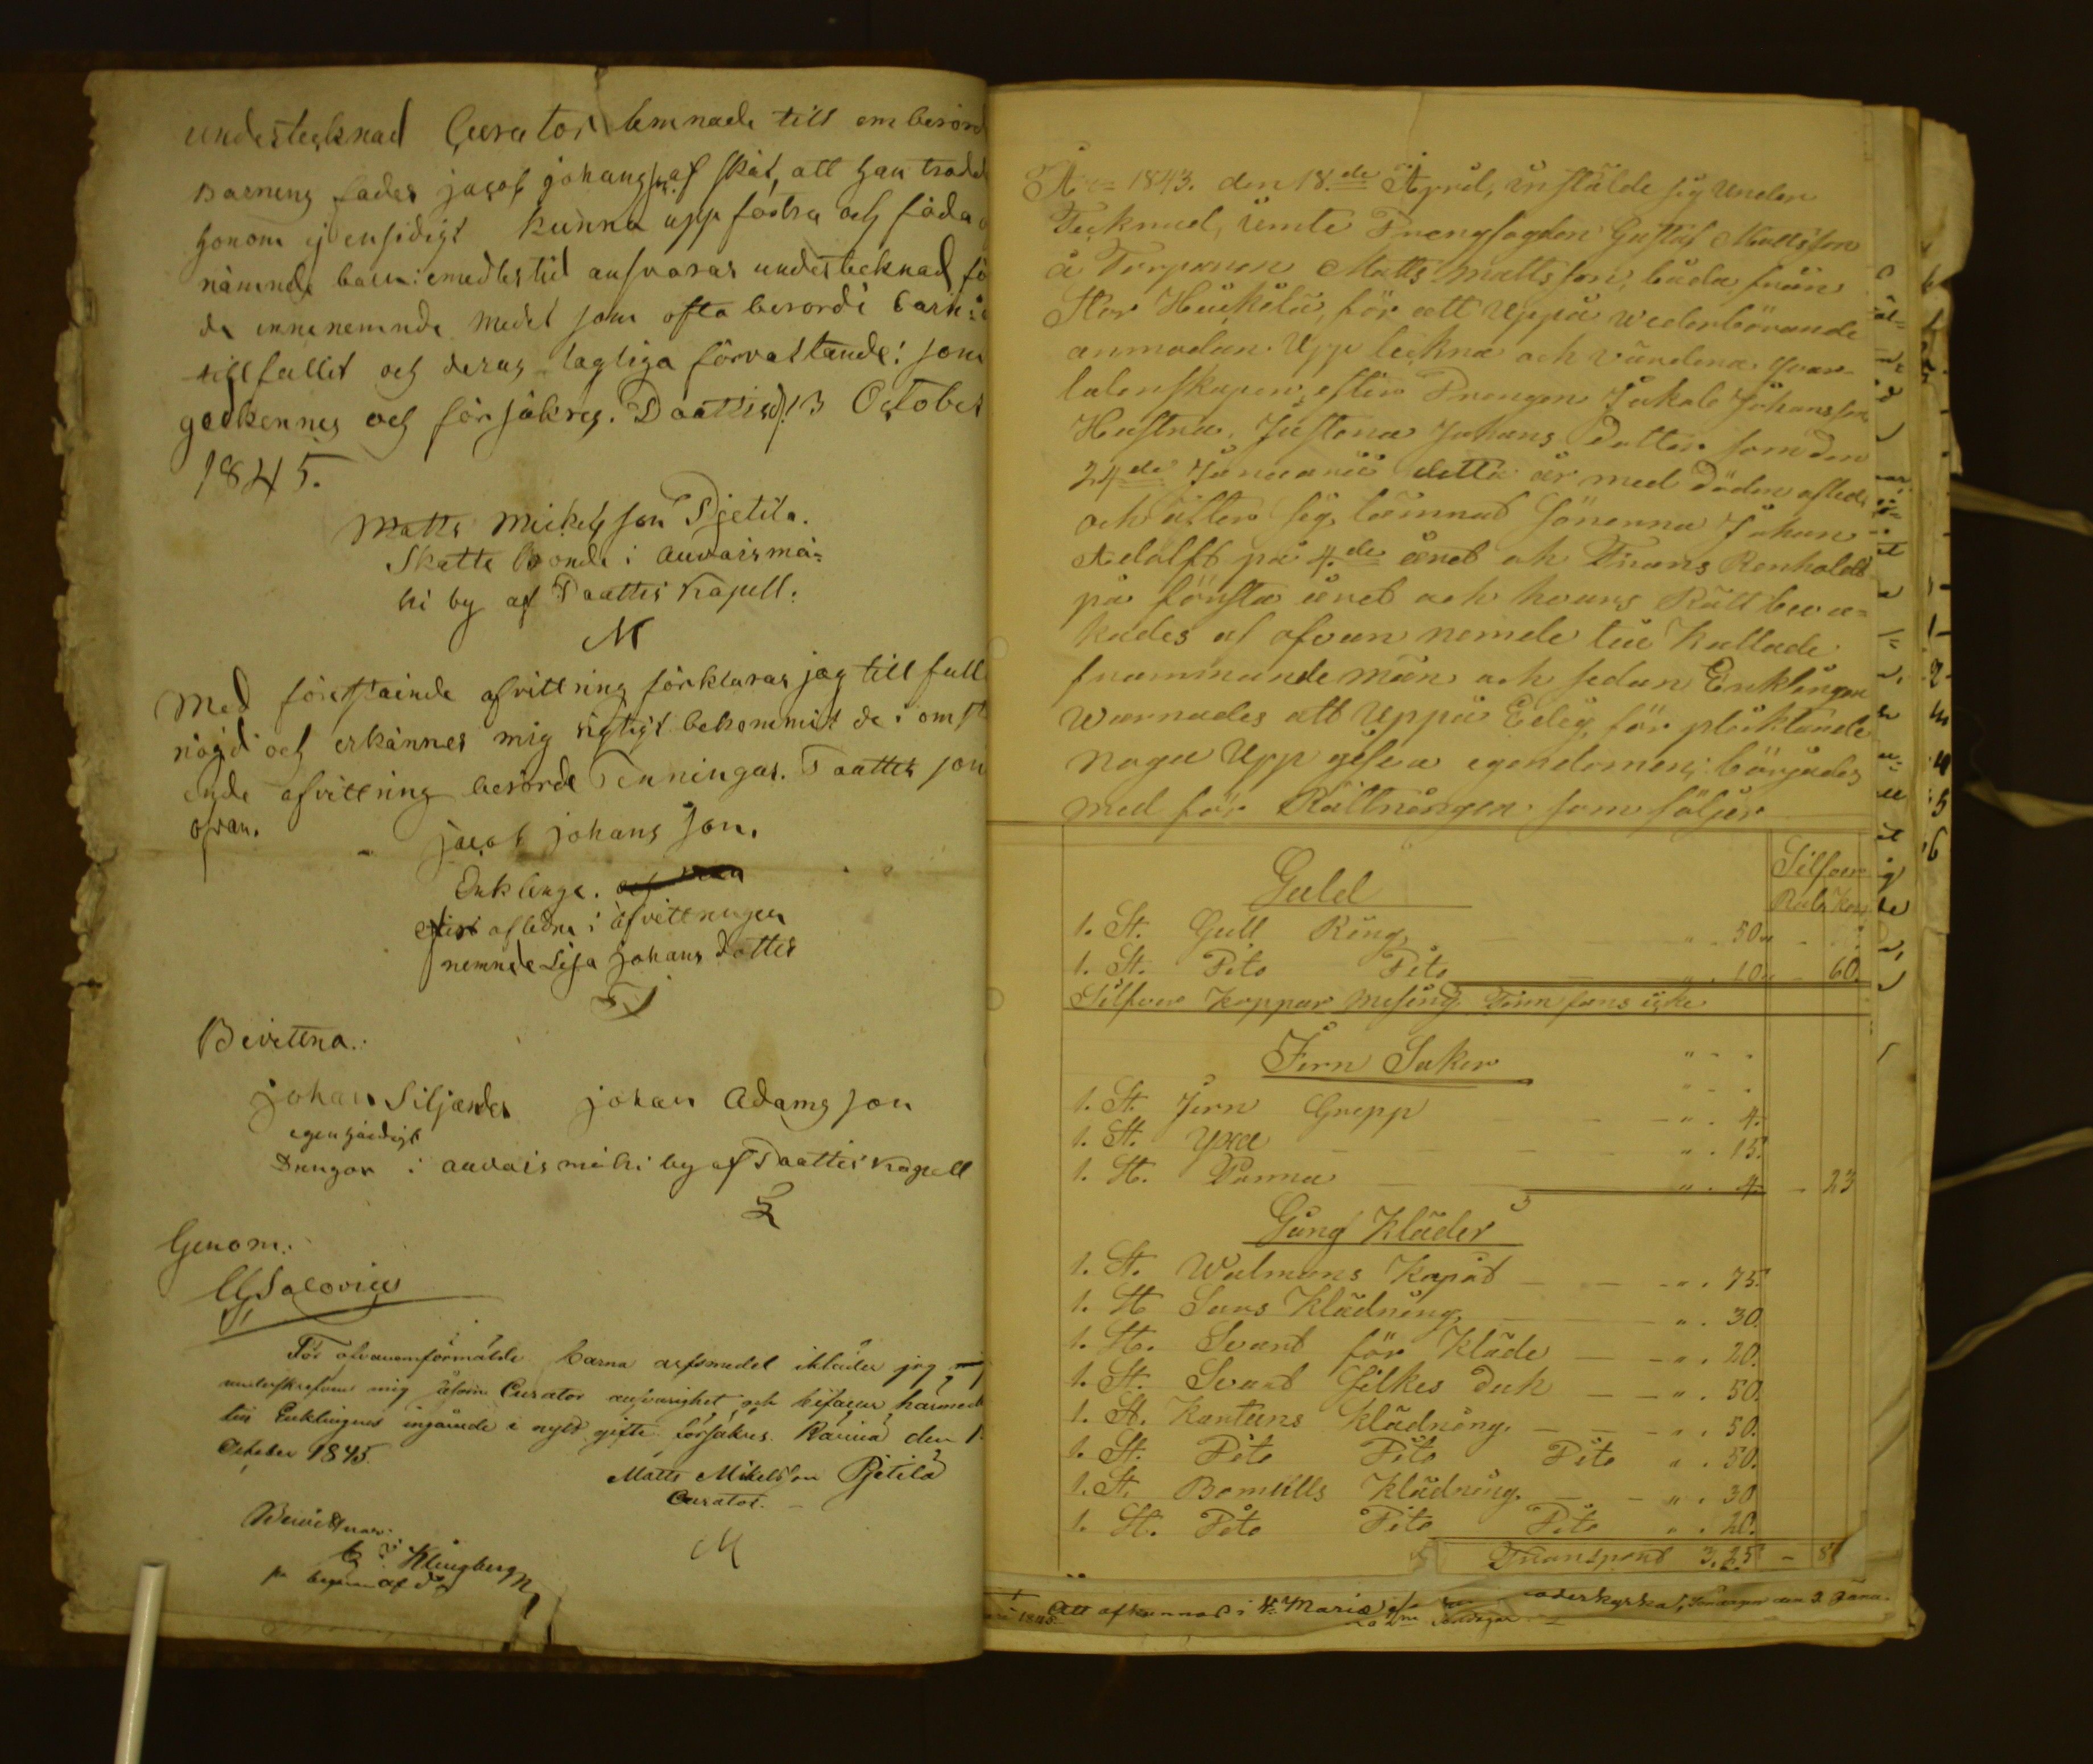 undestecknad Curator lemnade till omberörd
Barnens fader jacob johansson af skät, att han trodde
honom ej ensidigt kunna uppfostra och föda
nämnde barn: emedlertid ansvaras undestecknad fö
de innenemnde medel som ofta berorde barn
tillfallit och deras lagliga förvaltande: som
godkennes och försäkres. Paattis d. 13 October
1845.
Matts Mickelsson Pjetilä.
Skatte bonde i Auvaismä=
ki by af Paattis Kapell.
M
Med förestaände afvittring förklaras jag till full
nöjd och erkännes mig rigtigt bekommit de i omst
ende afvittring berörde Penningar. Paattis som
ofvan.
jacob johans son.
Enklinge.
efter afledna i afvittringen
nemnde Lisa Johans dotter
Bevittna.
johan Siljander johan Adamsson
egenhändigt
Drengar i auvaismäki by af Paattis Kapell
Genom.
För ofvanomförmälde barns arfsmedel ikläder jag
underskrefven mig såsom Curator ansvarighet och bifaller härmed
till Enklingens ingående i nytt gifte försäkres. Rännä den 1
October 1845.
Matts Mikelsson Pjetilä
Curator.
M
Bewittnar:
Klingberg
på begäran af
År 1843. den 18.de April, instälde sig Under
Tecknad, ämte Drengfogden Gustaf Mattsson
å Torparen Matts Mattsson, båda från
Stor Heikilä, för att Uppå wederbörande
anmodan Upp teckna och värdera qvar-
latenskapen, efter Drengen Jakob Johansson
Hustru, Justena Johans Dotter som den
24de Januarii detta år med döden afled,
och efter sig lämnat Sönerna Johan
Adolft på 4.de året och Frans Renholdt
på första året och hvars Rätt beva=
kades af ofvan nemde till Kallade
frammande män och sedan Enklingen
Warnades att Uppå Edelig för plicktande
noga Upp gifva egendomen; börjades
med för Rättningen som följer
Silfver
Rub. Kop
Guld
1. St. Gull Ring " 50"
1. St. Dito Dito " 10" - 60.
Silfver Koppar Mesing Tenn fans icke
Jern Saker
1. St. Jern Grepp - " . 4.
1. St. Yxa " . 15.
1. St. Panna " . 4. - 23
Gång Kläder
1. St. Walmans Kapåt " . 75.
1. St Sars Klädning " . 30.
1. St. Svart för Kläde " . 20.
1. St. Svart Silkes duk " . 50.
1. St. Kartuns Klädning. " . 50.
1. St. Dito Dito Dito " . 50.
1. St. Bomulls Klädning. " . 30
1. St. Dito Dito Dito " . 20.
Transport 3.25 - 8
Att afkunnas i St. Mariæ